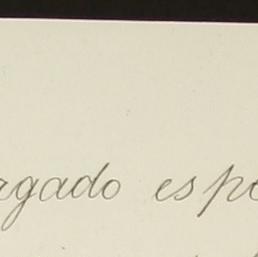 rgado espe